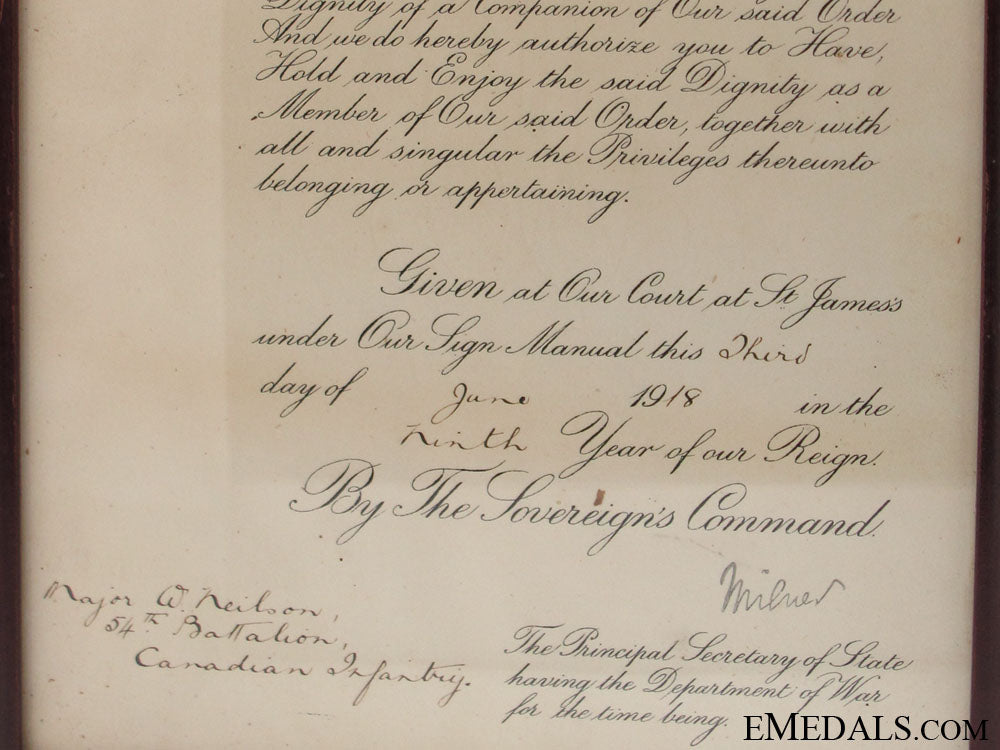 Dignity of a Companion of Our said Order
And we do hereby authorize you to Have,
Hold and Enjoy the said Dignity as a
Member of Our said Order, together with
all and singular the Privileges thereunto
belonging or appertaining.
Given at Our Court at St. James's
under Our Sign Manual this Third
day of June 1918 in the
ninth Year of our Reign.
By The Sovereign's Command.
Milner
Major W. Neilson,
54th Battalion,
Canadian Infantry.
The Principal Secretary of State
having the Department of War
for the time being.
EMEDALS.COM